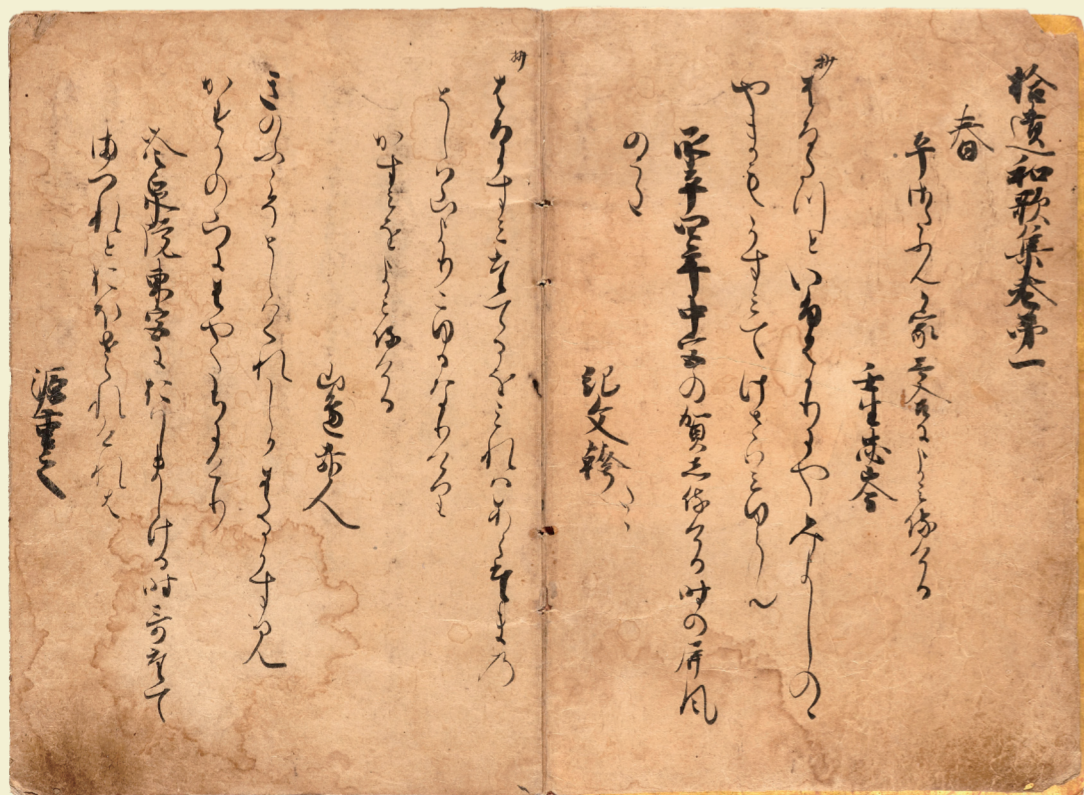 拾遺和歌集巻第一
春
平さたふんか家哥合によみ侍ける
壬生忠岑
抄
はるたつといふはかりにやみよしのゝ
やまもかすみてけさはみゆらん
承平四年中宮の賀し侍ける時の屏風
のうた
紀文幹
抄
はるかすみたてるをみれはあらたまの
としは山よりこゆるなりけり
かすみをよみ侍ける
山辺赤人
きのふこそとしはくれしかはるかす見
かすかの山にはやたちにけり
冷泉院東宮におはしましける時哥たて
まつれとおほせられけれは
源重之